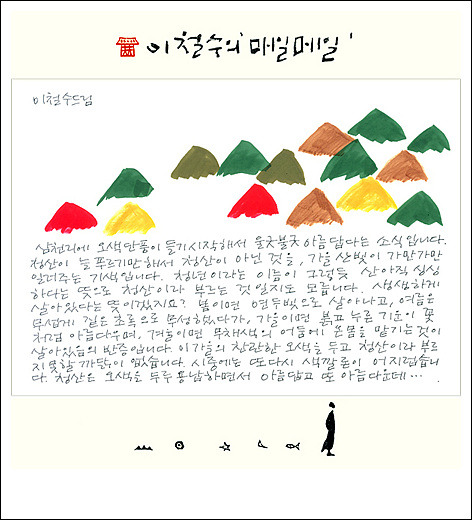 이철수의 '매일메일'
이철수드림
삼천리에 오색단풍이 들기시작해서 울긋불긋 아름답다는 소식입니다.
청산이 늘 푸르기만해서 청산이 아닌 것을, 가을 산빛이 가만가만
일러주는 기색입니다. 청년이라는 이름이 그렇듯 산아직 싱싱
하다는 뜻으로 청산이라 부르는 것 일지도 모릅니다. 생생하게
살아있다는 뜻이겠지요? 봄이면 연두빛으로 살아나고, 여름은
무섭게 짙은 초록으로 무성하였다가, 가을이면 붉고 누른 기운이 꽃
처럼 아름다우며, 겨울이면 무채색의 어둠에 온몸을 맡기는것이
살아있음의 반증입니다. 이가을의 찬란한 오색을 두고 청산이라 부르
지 못할 까닭이 없습니다. 시중에는 또다시 색깔론이 어지럽습니
다. 청산은 오색을 두루 용납하면서 아름답고 또 아름다운데…